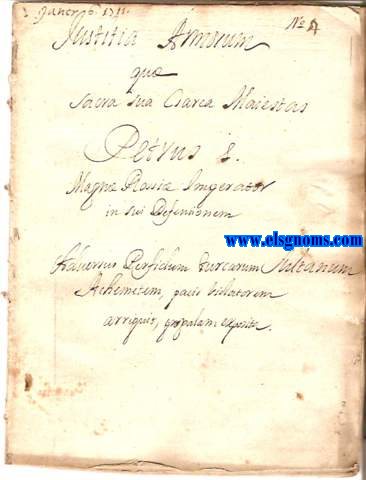 Janer 6. 1711.
No 4
Justitia Armorum
quæ
Sacra sua Czarea Maiestas
Petrus I.
Magnæ Russiæ Imperator
in sui Defensionem
www.elsgnoms.com
Adversus Perfidum Turcarum Sultanum
Achemetem, pacis violatorem
arripuit, propalam exposita.